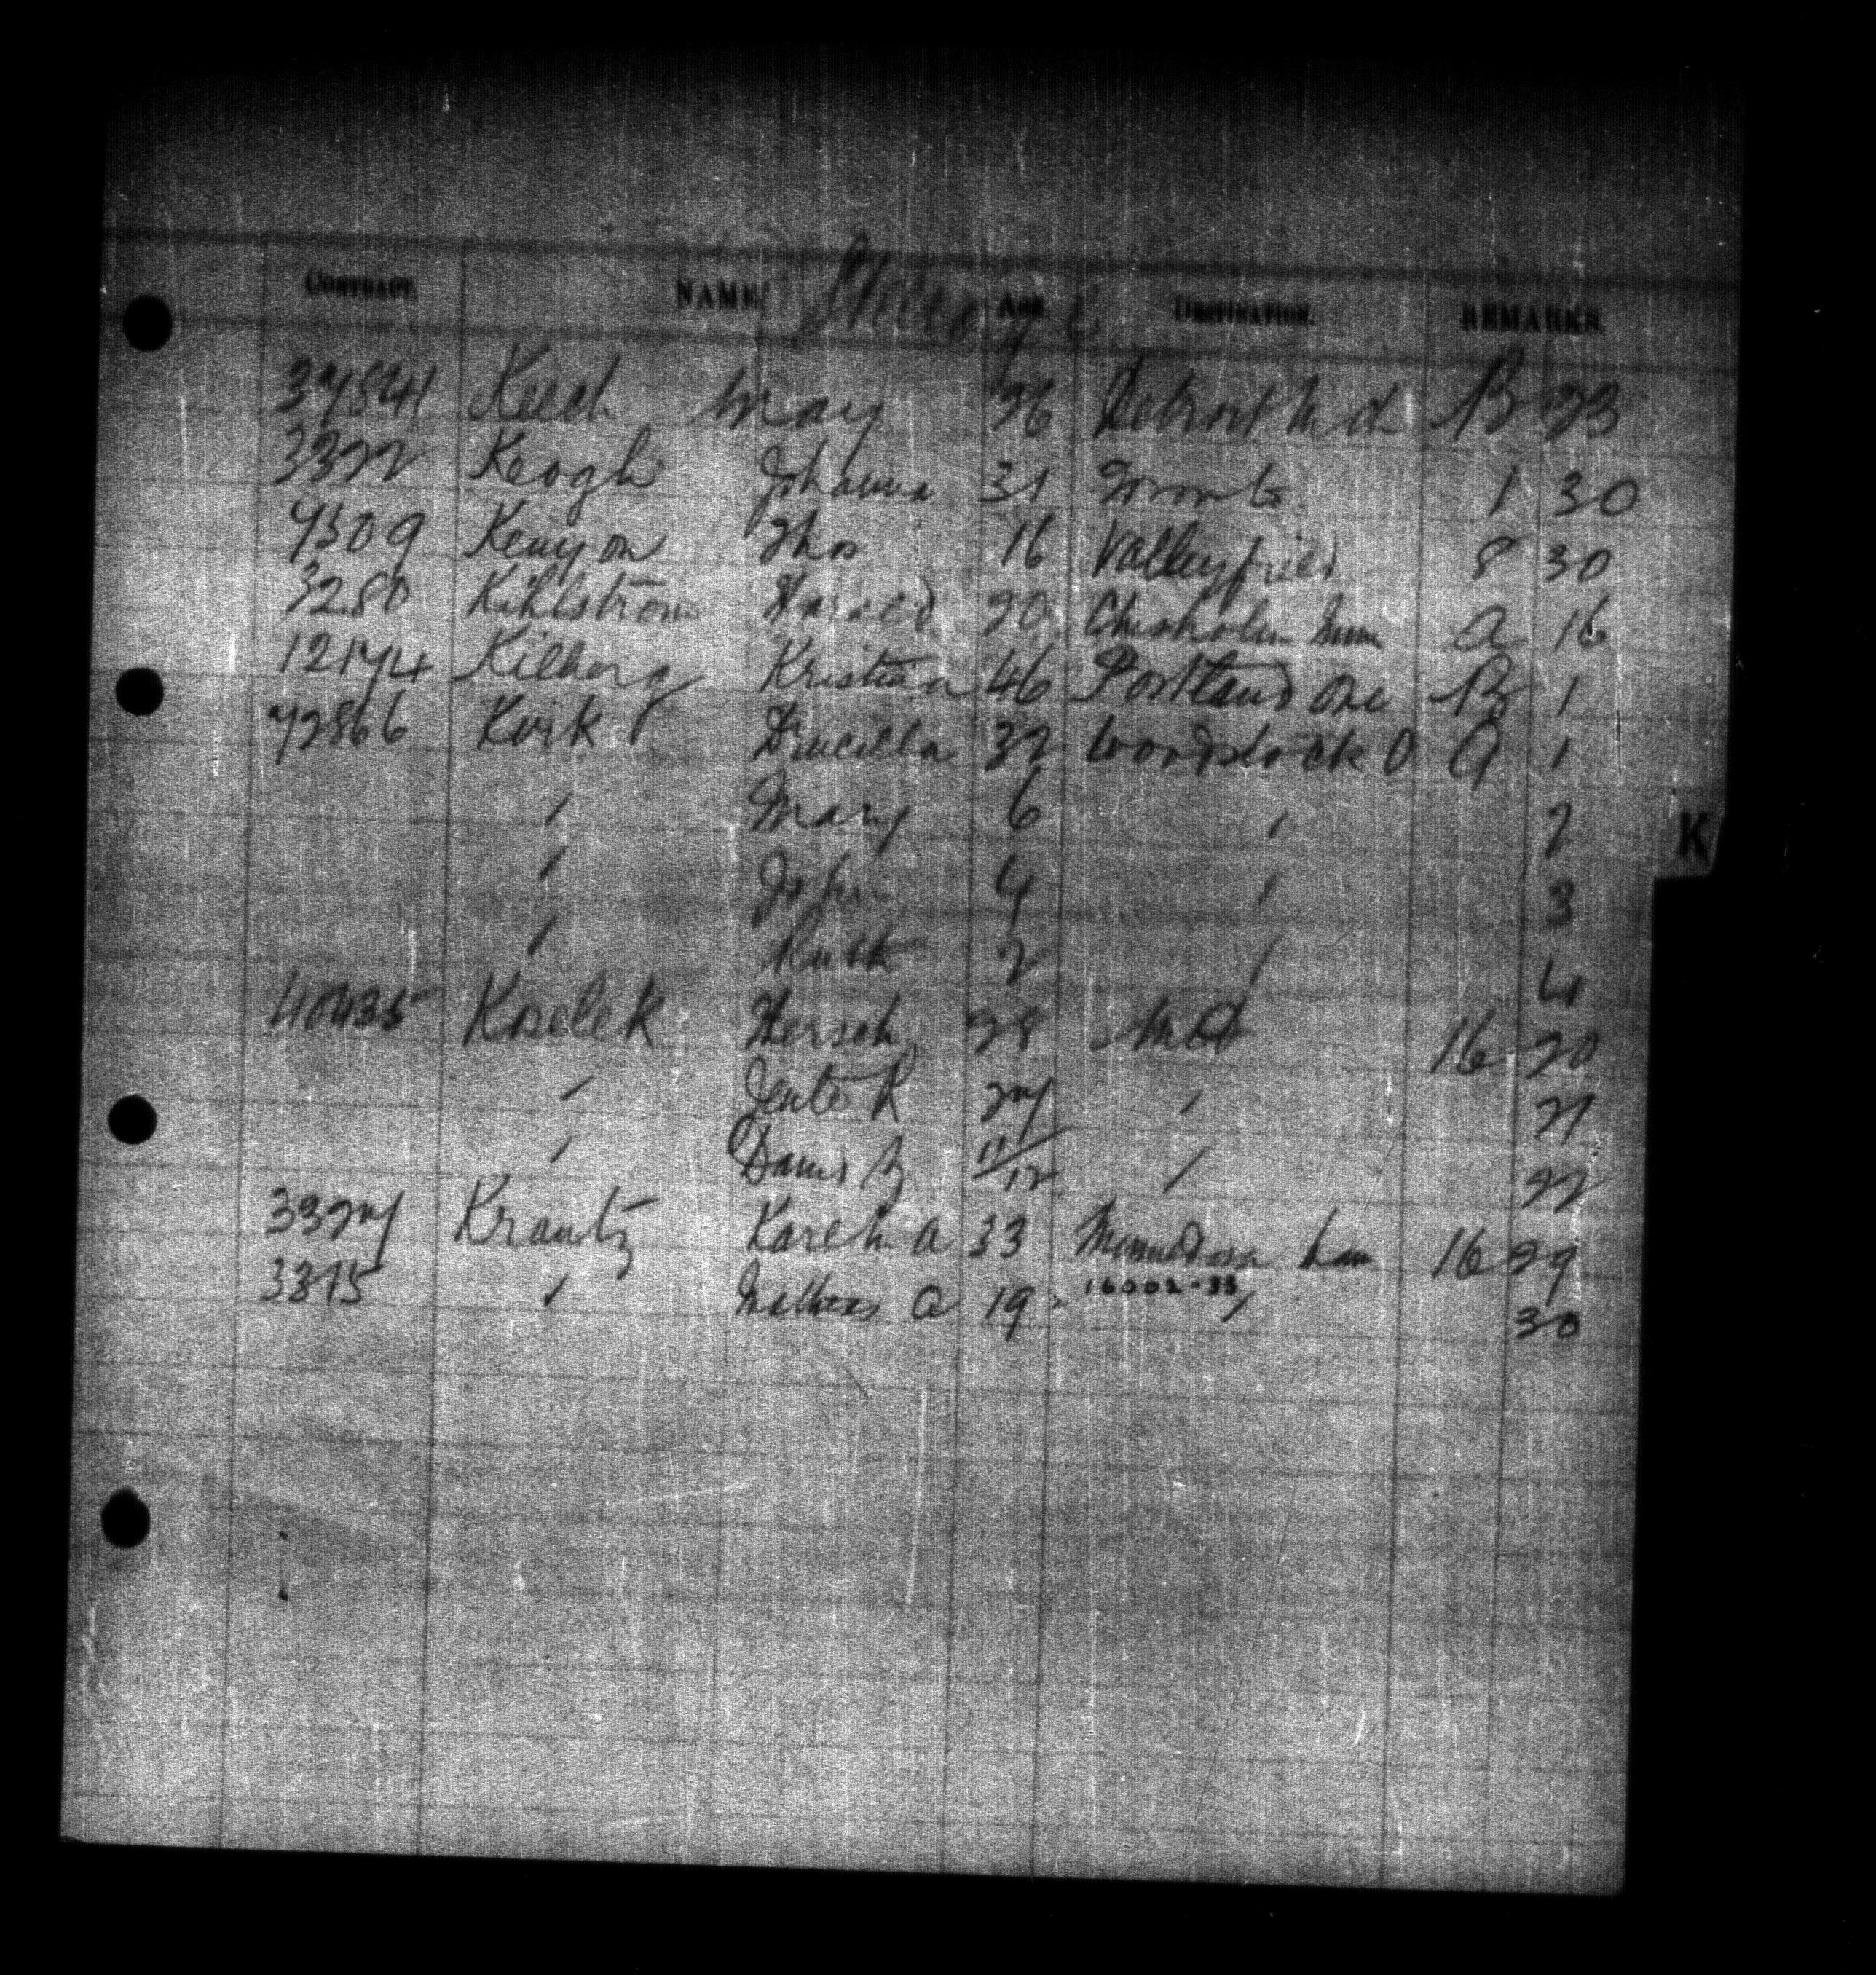 CONTRACT. NAME Steerage AGE DESTINATION. REMARKS.
37541 Keech May 26 Detroit Mch B 23
3322 Keogh Johanna 31 Toronto 1 30
Kenyon Thos 16 Valleyfield 8 30
3280 Kihlstrom Harald 20 Chisholm Minn A 16
12174 Kilberg Kristian 46 Portland Ore B 1
72866 Kirk Drucilla 32 Woodstock O A 1
" Mary 6 " 2
K
" John 4 " 3
" Ruth 2 " 4
Koselek Hersch 28 16 20
" Jente R 27 " 21
" David 11/12 " 22
3327 Krantz Karelin A 33 Minnedosa Man 16 29
3375 " Mathias A 19 " 30
16002-33